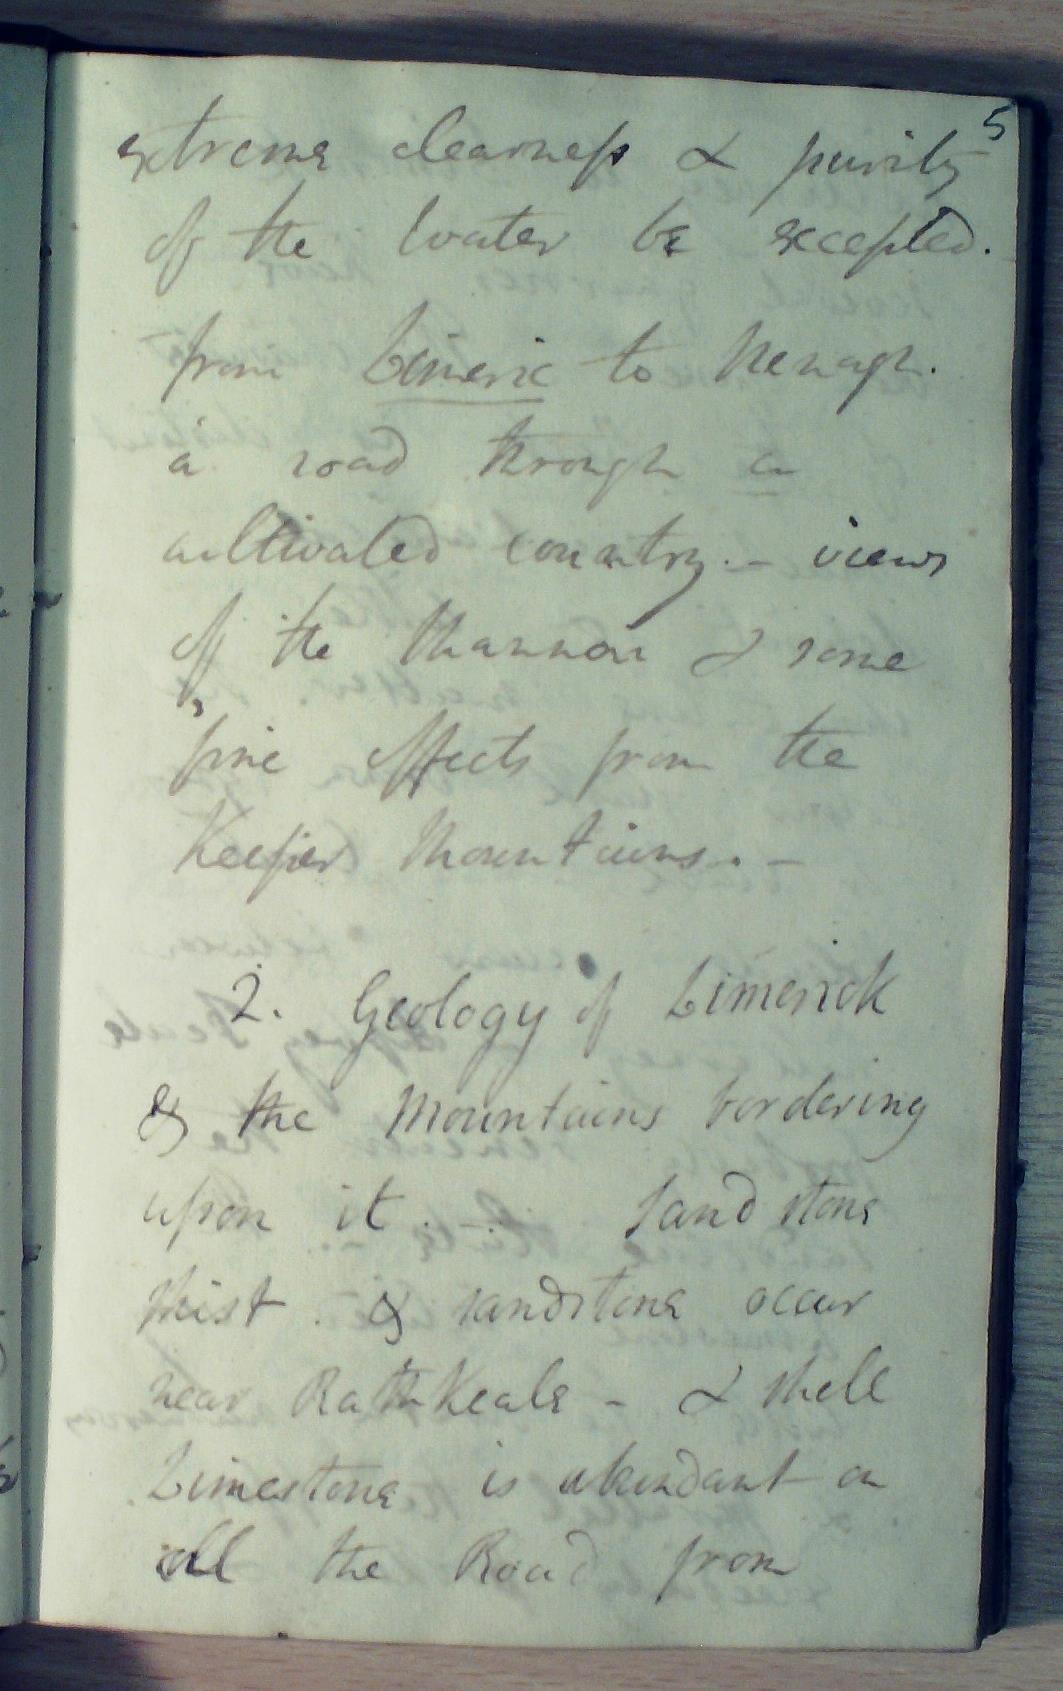 5
extreme clearness & purity
of the water be excepted.
from Limeric to Nenagh.
a road through a
cultivated country. – views
of the Shannon & some
fine effects from the
Keeper Mountains. –
2. Geology of Limerick
& the Mountains bordering
upon it. – Sand stone
shist. & sandstone occur
near RathKeale – & shell
Limestone is abundant on
all the Road from